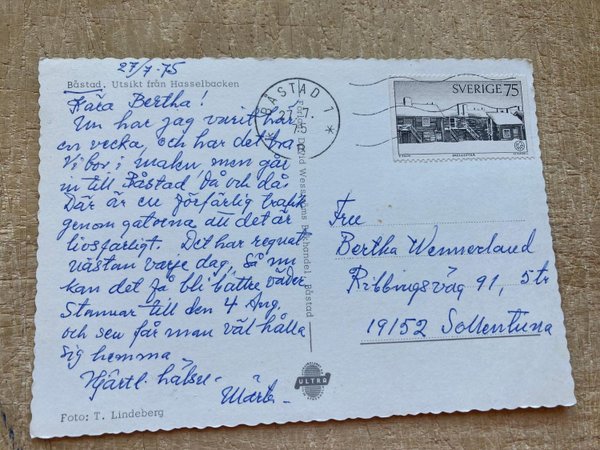 27/7-75
Båstad. Utsikt från Hasselbacken
Kära Bertha!
Nu har jag varit här
en vecka, och har det bra
Vi bor i malen men går
in till Båstad då och då.
Där är en förfärlig trafik
genom gatorna att det är
livsfarligt. Det har regnat
nästan varje dag, så nu
kan det få bli bättre väder.
Stannar till den 4 Aug.
och sen får man väl hålla
sig hemma.
Hjärtl. hälsn.
Foto: T. Lindeberg
BÅSTAD 1
75
Wessmans Bokhandel, Båstad
ULTRA
SVERIGE 75
Fru
Bertha Wennerland
Ribbingsväg 91, 5 tr
19152 Sollentuna